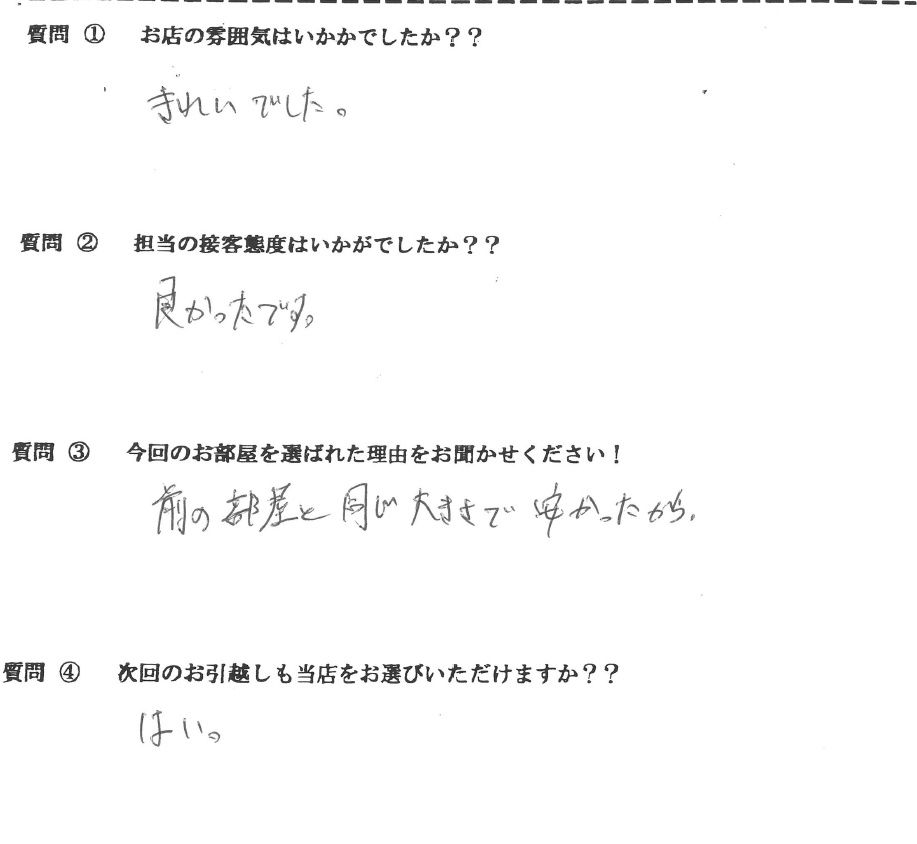 質問 ① お店の雰囲気はいかかでしたか??
きれいでした。
質問 ② 担当の接客態度はいかがでしたか??
良かったです。
質問 ③ 今回のお部屋を選ばれた理由をお聞かせください!
前の部屋と同じ大きさで安かったから.
質問 ④ 次回のお引越しも当店をお選びいただけますか??
はい。